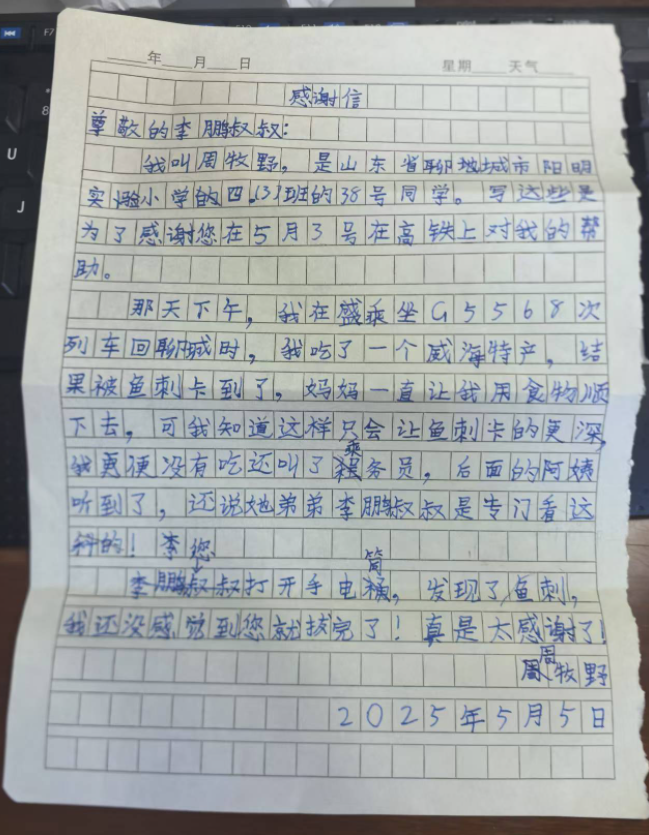 F7
8
U
J
年 月 日 星期 天气
感谢信
尊敬的李鹏叔叔：
我叫周牧野，是山东省聊地城市阳明
实验小学的四.(3)班的38号同学。写这些是
为了感谢您在5月3号在高铁上对我的帮
助。
那天下午，我在乘坐G5568次
列车回聊城时，我吃了一个威海特产，结
果被鱼刺卡到了，妈妈一直让我用食物顺
下去，可我知道这样只会让鱼刺卡的更深，
我更便没有吃还叫了乘务员，后面的阿姨
听到了，还说她弟弟李鹏叔叔是专门看这
科的！李您
李鹏叔叔打开手电筒，发现了鱼刺，
我还没感觉到您就拔完了！真是太感谢了！
周牧野
2025年5月5日